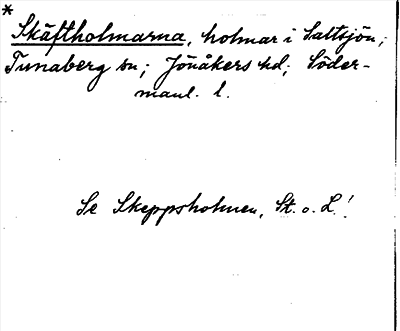 *
Skäftholmarna, holmar i Saltsjön;
Tunaberg sn; Jönåkers hd; Söder-
manl. l.
Se Skeppsholmen, St. o. L.!